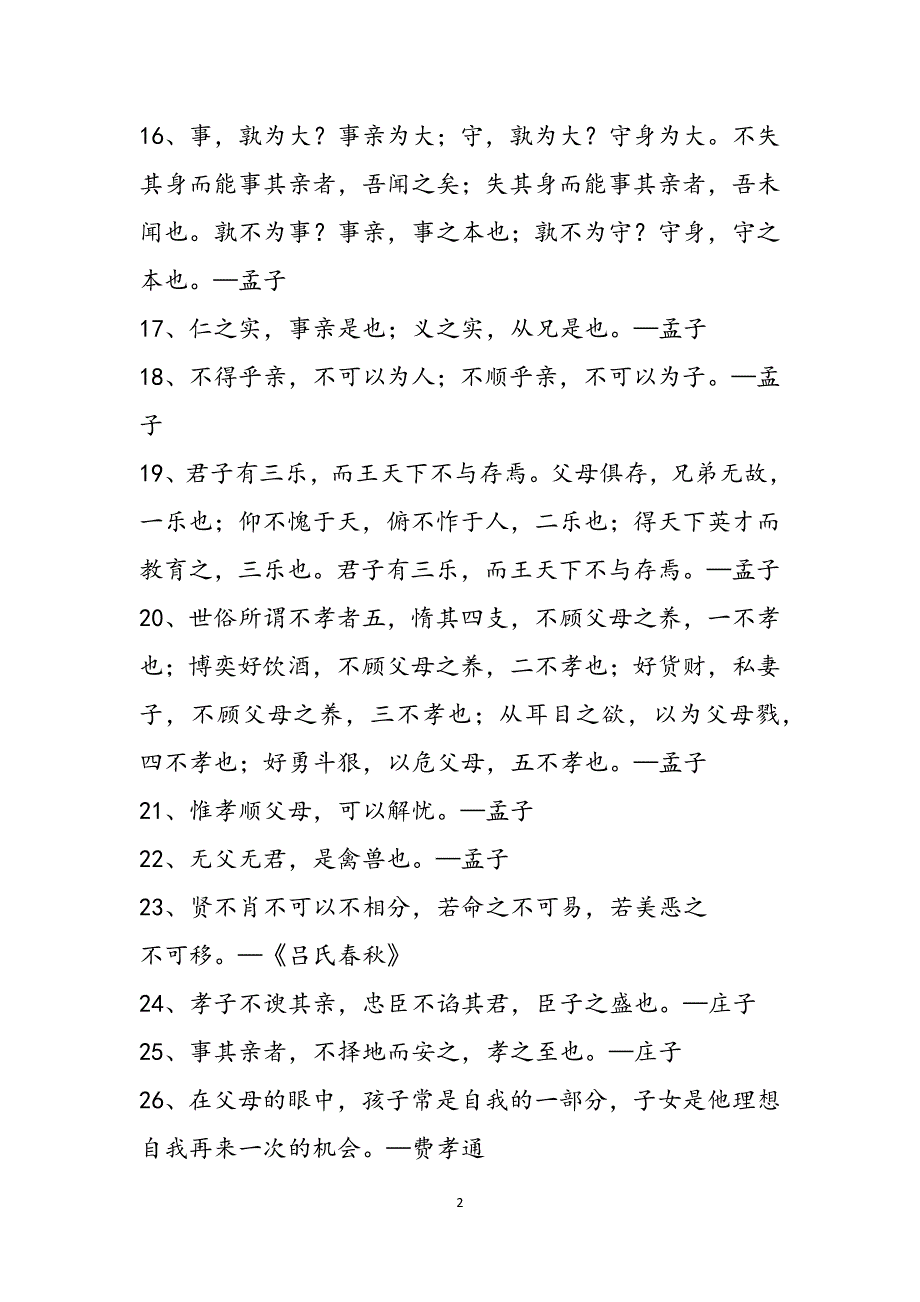 16、事，孰为大？事亲为大；守，孰为大？守身为大。不失
其身而能事其亲者，吾闻之矣；失其身而能事其亲者，吾未
闻也。孰不为事？事亲，事之本也；孰不为守？守身，守之
本也。—孟子
17、仁之实，事亲是也；义之实，从兄是也。—孟子
18、不得乎亲，不可以为人；不顺乎亲，不可以为子。—孟
子
19、君子有三乐，而王天下不与存焉。父母俱存，兄弟无故，
一乐也；仰不愧于天，俯不怍于人，二乐也；得天下英才而
教育之，三乐也。君子有三乐，而王天下不与存焉。—孟子
20、世俗所谓不孝者五，惰其四支，不顾父母之养，一不孝
也；博奕好饮酒，不顾父母之养，二不孝也；好货财，私妻
子，不顾父母之养，三不孝也；从耳目之欲，以为父母戮，
四不孝也；好勇斗狠，以危父母，五不孝也。—孟子
21、惟孝顺父母，可以解忧。—孟子
22、无父无君，是禽兽也。—孟子
23、贤不肖不可以不相分，若命之不可易，若美恶之
不可移。—《吕氏春秋》
24、孝子不谀其亲，忠臣不谄其君，臣子之盛也。—庄子
25、事其亲者，不择地而安之，孝之至也。—庄子
26、在父母的眼中，孩子常是自我的一部分，子女是他理想
自我再来一次的机会。—费孝通
2